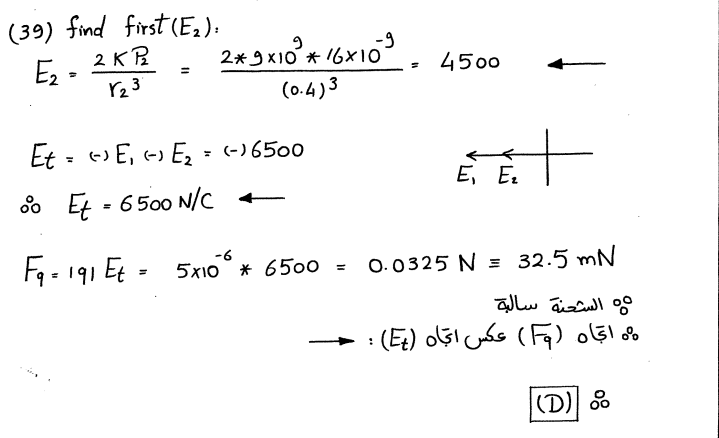 (39) find first (E₂):
E₂ = 2 K P₂ / r₂³ = 2*9x10⁹ * 16x10⁻⁹ / (0.4)³ = 4500 ←
Et = (-) E₁ (-) E₂ = (-) 6500
E₁ E₂
∴ Et = 6500 N/C ←
Fq = |q| Et = 5x10⁻⁶ * 6500 = 0.0325 N ≡ 32.5 mN
∵ الشحنة سالبة
∴ اتجاه (Fq) عكس اتجاه (Et) : →
∴ (D)